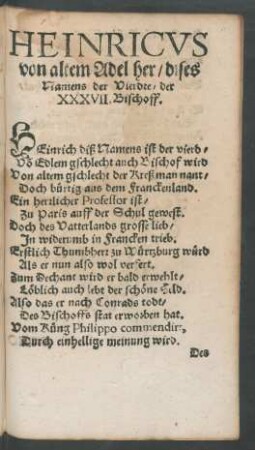 HEINRICVS
von altem Adel her / dises
Namens der Vierdte / der
XXXVII. Bischoff.
HEinrich diß Namens ist der vierd /
Võ Edlem gschlecht auch Bischof wird
Von altem gschlecht der Kreßman nant /
Doch bürtig aus dem Franckenland.
Ein herrlicher Professor ist /
Zu Pariß auff der Schul gewest.
Doch des Vatterlands grosse lieb /
In widerumb in Francken trieb.
Erstlich Thumbherr zu Würtzburg würd
Als er nun also wol verfert.
Zum Dechant wird er bald erwehlt /
Löblich auch lebt der schöne Held.
Also das er nach Conrads todt /
Des Bischoffs stat erworben hat.
Vom Küng Philippo commendirt,
Durch einhellige meinung wird.
Des